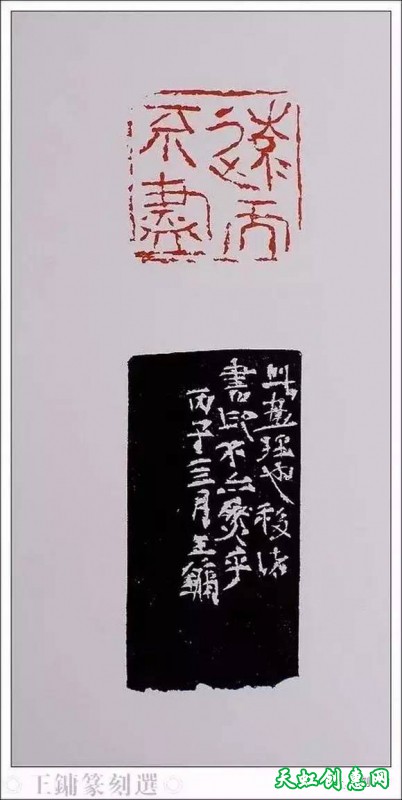 遠而
不盡
此畫理也移諸
書印不亦爽乎
丙子三月王鏞
王鏞篆刻選
天虹创惠网